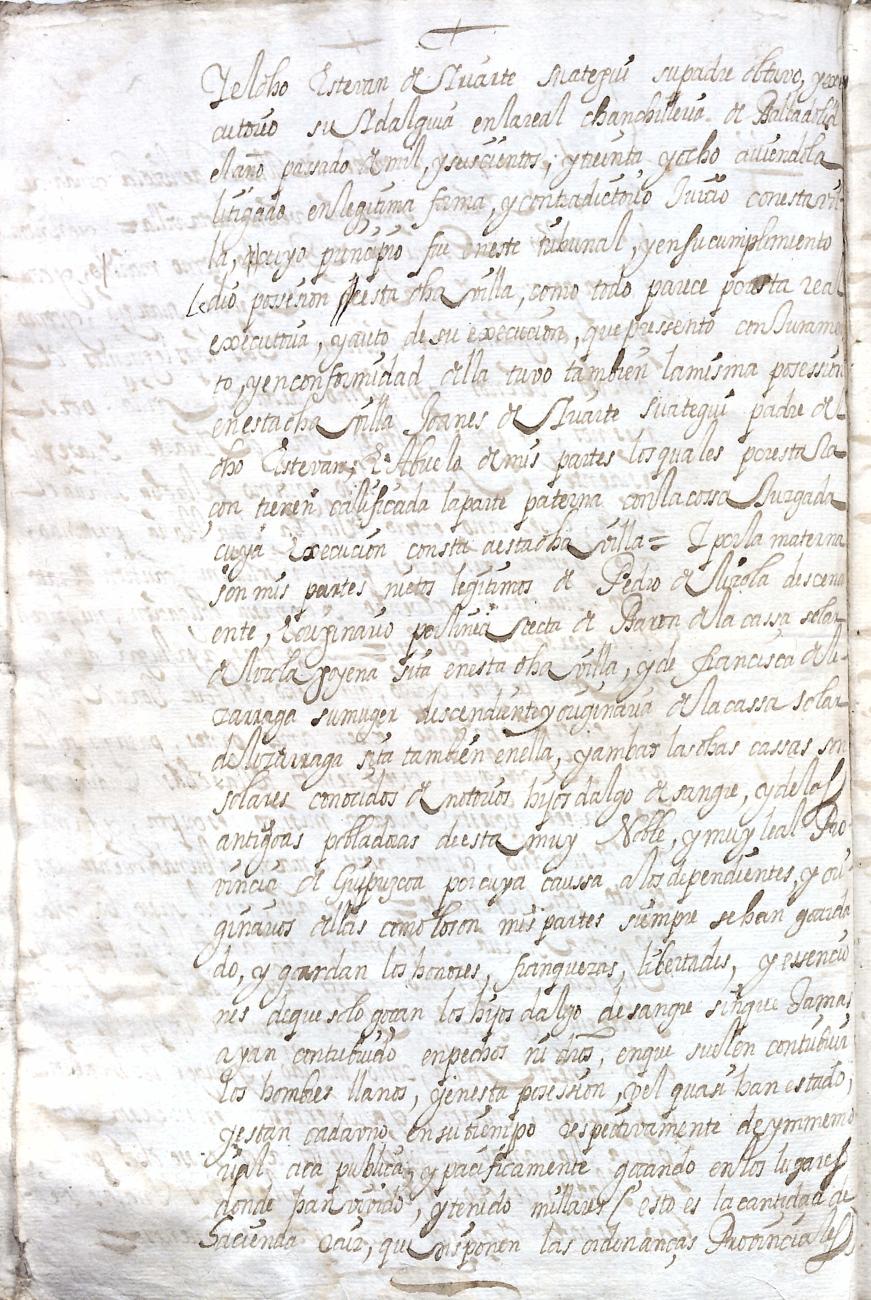 Y el dho Estevan de Yriarte Suategui su padre obtuvo, y exe
cutorio su Hidalguia en la real chanchilleria de Balladolid
el año passado de mil, y seiscientos, y treinta y ocho aviendola
litigado en legitima forma, y contradictorio Juicio con esta vi
lla, cuyo principio fue en este tribunal, y en su cumplimiento
Le dio posesion esta dha villa, como todo parece por esta real
executoria, y auto de su execucion, que pressento con Jurame
to, y en conformidad de ella tuvo tambien la misma posession
en esta dha villa Joanes de Yriarte Suategui padre del
dho Estevan, y Abuelo de mis partes los quales por esta Ra
çon tienen calificada la parte paterna con la cossa Juzgada
cuya Execucion consta a esta dha villa = Y por la materna
son mis partes nietos legitimos de Pedro de descend
ente, y originario por linea recta de Baron de la cassa solar
de goyena sita en esta dha villa, y de francisca de li
zarraga su muger descendiente y originaria de la cassa solar
de lizarraga sita tambien en ella, y ambas las dhas cassas son
solares conocidos de notorios hijos dalgo de sangre, y de las
antiguas pobladoras de esta muy Noble, y muy leal Pro
vincia de Guipuzcoa por cuya caussa a los dependientes, y ori
ginarios de ellas como lo son mis partes siempre se han guarda
do, y guardan los honores, franquezas, libertades, y essencio
nes de que solo gozan los hijos dalgo de sangre sin que Jamas
ayan contribuido en pechos ni dros, en que suelen contribuir
los hombres llanos, y en esta posession, vel quasi han estado,
y estan cada uno en su tiempo respectivamente de ymmemo
rial aca publica, y pacificamente gozando en los lugares
donde han vivido, y tenido millares / esto es la cantidad de
hacienda raiz, que disponen las ordinanças Provinciales